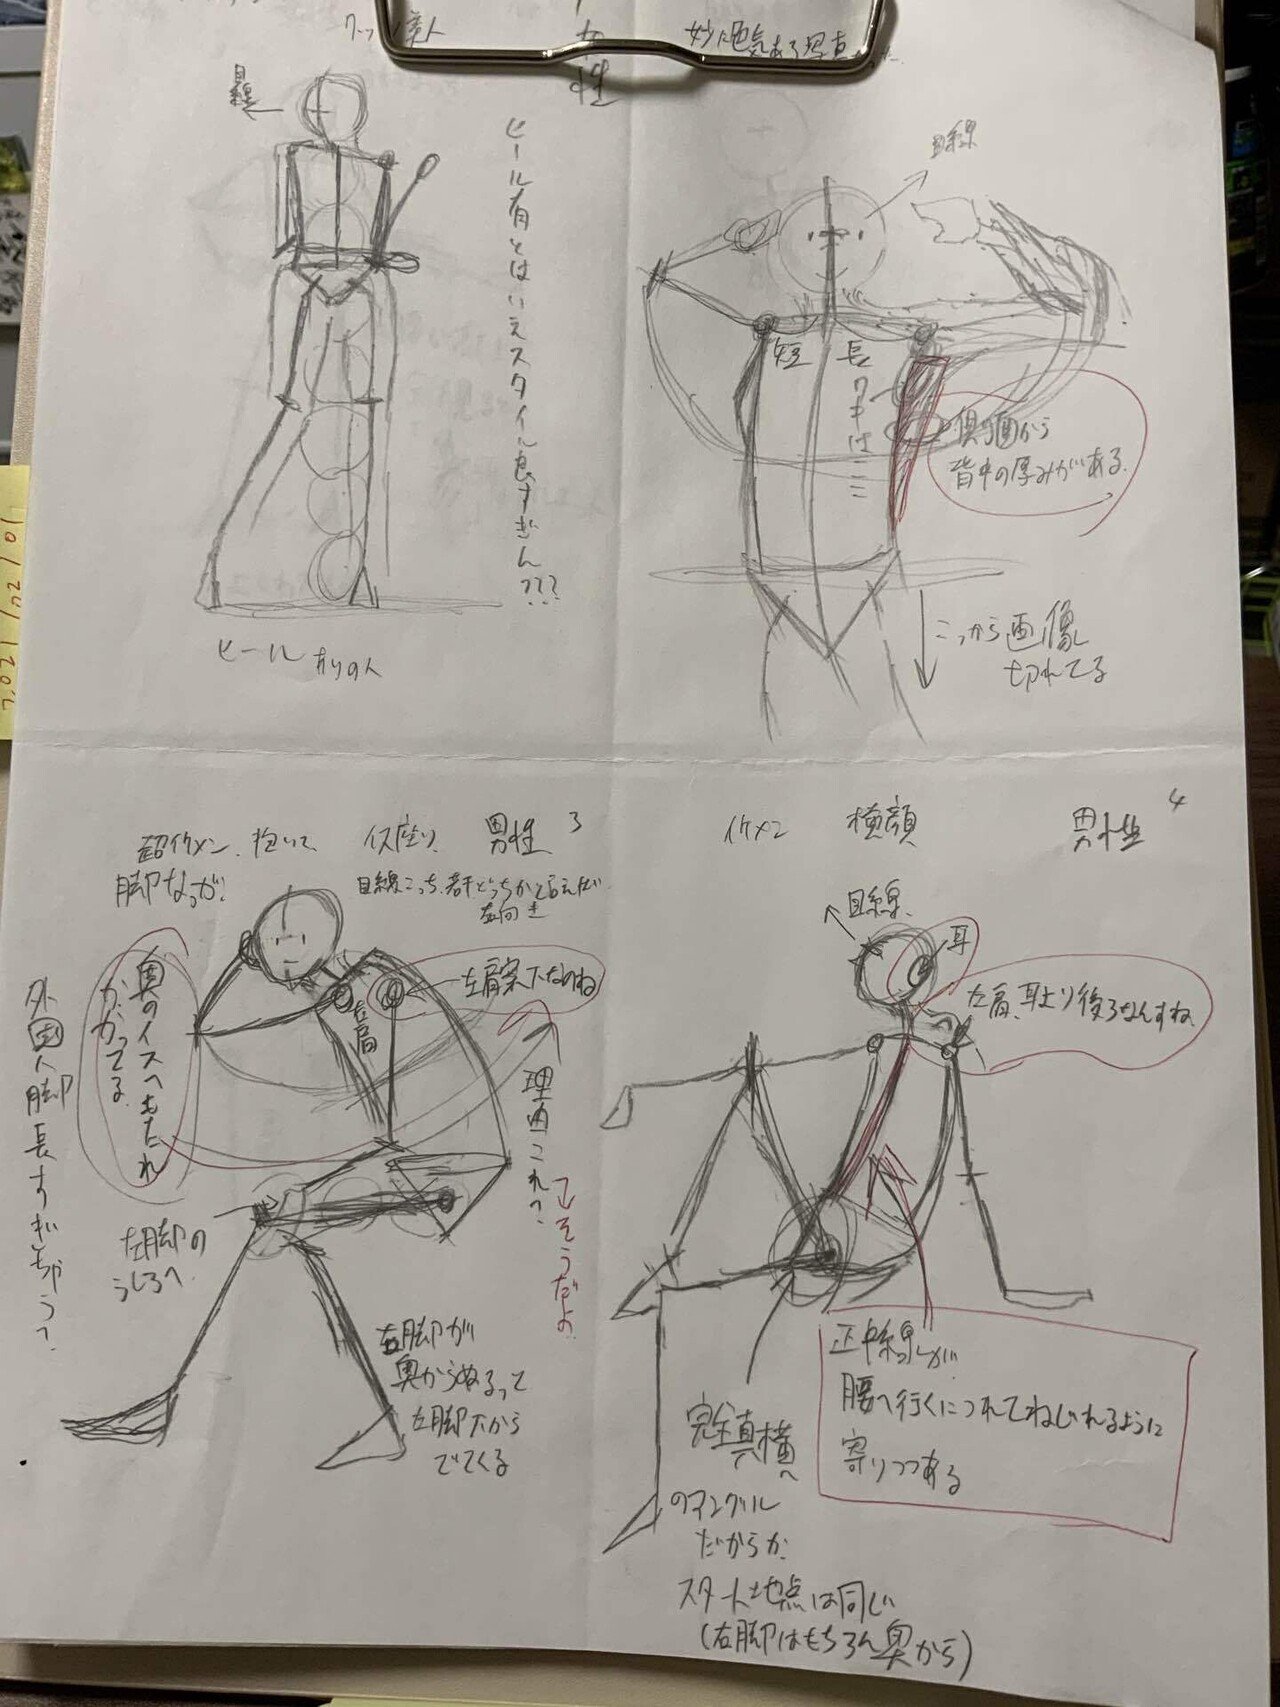 女性
妙に色気ある写真
目線
ヒール有とはいえスタイル良すぎん???
ヒールありの人
目線
短
長
側面から
背中の厚みがある。
こっから画像
切れてる
2021/02/01
超イケメン、抱いて
脚なっが?
イス座り
男性
3
目線こっち、若干どっちかと言えば
右向き
奥のイスへもたれ
かかってる
外国人脚長すぎちゃう?
左肩案下なのね
左肩
理由これ?
→そうだよ
左脚の
うしろへ
右脚が
奥からぬるって
左脚下から
でてくる
イケメン
横顔
男性
4
目線
耳
左肩、耳より後ろなんすね
正中線が
腰へ行くにつれてねじれるように
寄りつつある
完全真横へ
のアングル
だからか、
スタート地点は同じ
(右脚はもちろん奥から)